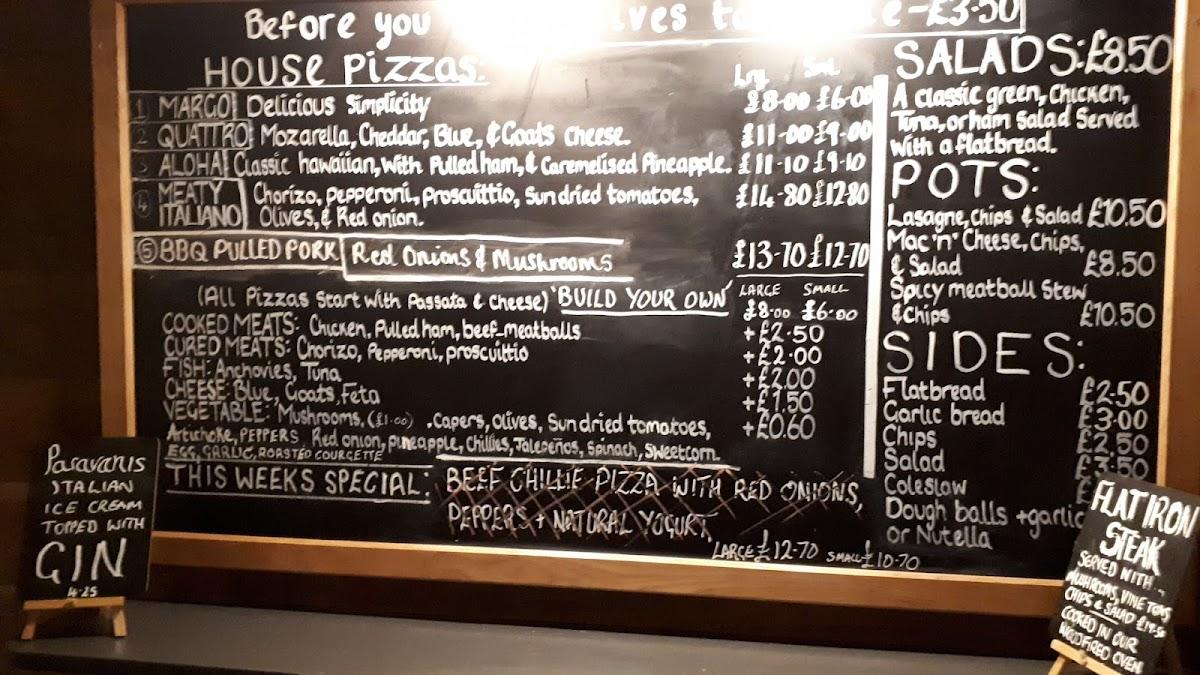 Before you
£3.50
HOUSE PIZZAS:
Lrg Sml
1 MARGO: Delicious Simplicity £8.00 £6.00
2 QUATTRO: Mozarella, Cheddar, Blue, & Goats Cheese. £11-00 £9-00
3 ALOHA: Classic hawaiian, with Pulled ham, & Caremelised Pineapple. £11-10 £9-10
4 MEATY ITALIANO Chorizo, pepperoni, proscuittio, Sundried tomatoes, £14-80 £12-80
Olives, & Red onion.
5 BBQ PULLED PORK Red Onions & Mushrooms £13-70 £12-70
(All Pizzas Start with Passata & Cheese) 'BUILD YOUR OWN' LARGE SMALL
£8.00 £6.00
COOKED MEATS: Chicken, Pulled ham, beef meatballs +£2.50
CURED MEATS: Chorizo, Pepperoni, proscuittio +£2.00
FISH: Anchovies, Tuna +£2.00
CHEESE: Blue, Goats, Feta +£1.50
VEGETABLE: Mushrooms, (£1.00) .Capers, olives, Sundried tomatoes, +£0.60
Artichoke, PEPPERS Red onion, pineapple, Chillies, Jalepeños, Spinach, Sweetcorn.
EGG, GARLIC, ROASTED COURGETTE
THIS WEEKS SPECIAL: BEEF CHILLIE PIZZA WITH RED ONIONS,
PEPPERS + NATURAL YOGURT
LARGE £12-70 SMALL £10-70
SALADS: £8.50
A classic green, Chicken,
Tuna, or ham Salad Served
with a flatbread.
POTS:
Lasagne, chips & Salad £10.50
Mac 'n' Cheese, Chips,
& Salad £8.50
Spicy meatball Stew
& Chips £10.50
SIDES:
Flatbread £2.50
Garlic bread £3.00
Chips £2.50
Salad £3.50
Coleslaw £
Dough balls + garlic
or Nutella
Paravanis
ITALIAN
ICE CREAM
TOPPED WITH
GIN
4.25
FLAT IRON
STEAK
SERVED WITH
MUSHROOMS, VINE TOMS
CHIPS & SALAD £19.50
COOKED IN OUR
WOODFIRED OVEN